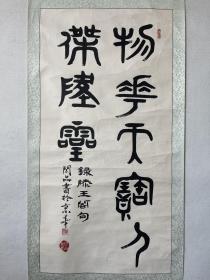 物華天寶人
傑地靈
錄滕王閣句
書於京華